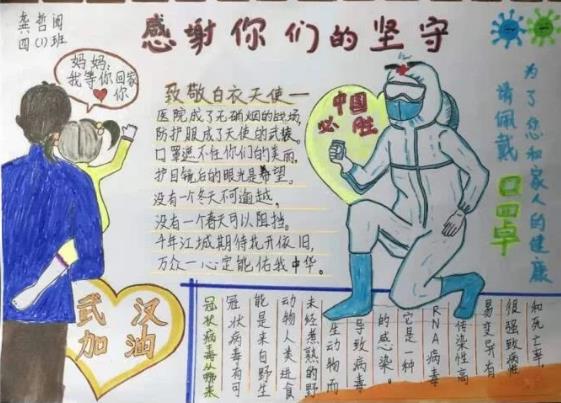 龚哲闻
四(1)班
感谢你们的坚守
妈妈:
我等你回家
你
致敬白衣天使一
医院成了无硝烟的战场,
防护服成了天使的武装。
口罩遮不住你们的美丽,
护目镜后的眼光是希望。
没有一个冬天不可逾越,
没有一个春天可以阻挡。
千年江城期待花开依旧,
万众一心定能佑我中华。
中国
必胜
为了您和家人的健康
请佩戴
口罩
武汉
加油
和死亡率。
很强致病性
易变异有
传染性高
RNA病毒
它是一种
的感染。
导致病毒
生动物而
未经煮熟的野
动物人类进食
能是来自野生
冠状病毒有可
冠状病毒从哪来